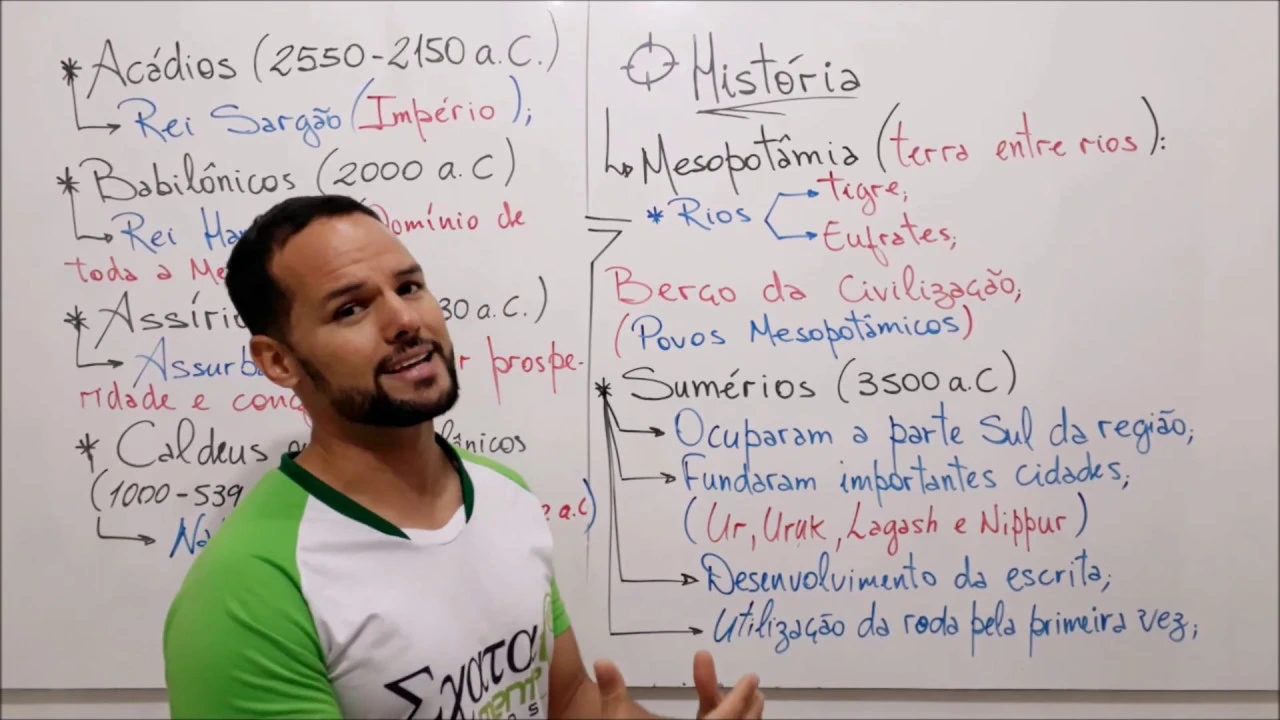 * Acádios (2550-2150 a.C.)
Rei Sargão (Império);
* Babilônicos (2000 a.C)
Rei Domínio de
toda a
* 30 a.C.)
prospe-
ridade e
* Caldeus
(1000-539 a.C)
História
Mesopotâmia (terra entre rios):
* Rios Tigre;
Eufrates;
Berço da Civilização;
(Povos Mesopotâmicos)
* Sumérios (3500 a.C)
Ocuparam a parte Sul da região;
Fundaram importantes cidades;
(Ur, Uruk, Lagash e Nippur)
Desenvolvimento da escrita;
Utilização da roda pela primeira vez;
Exata